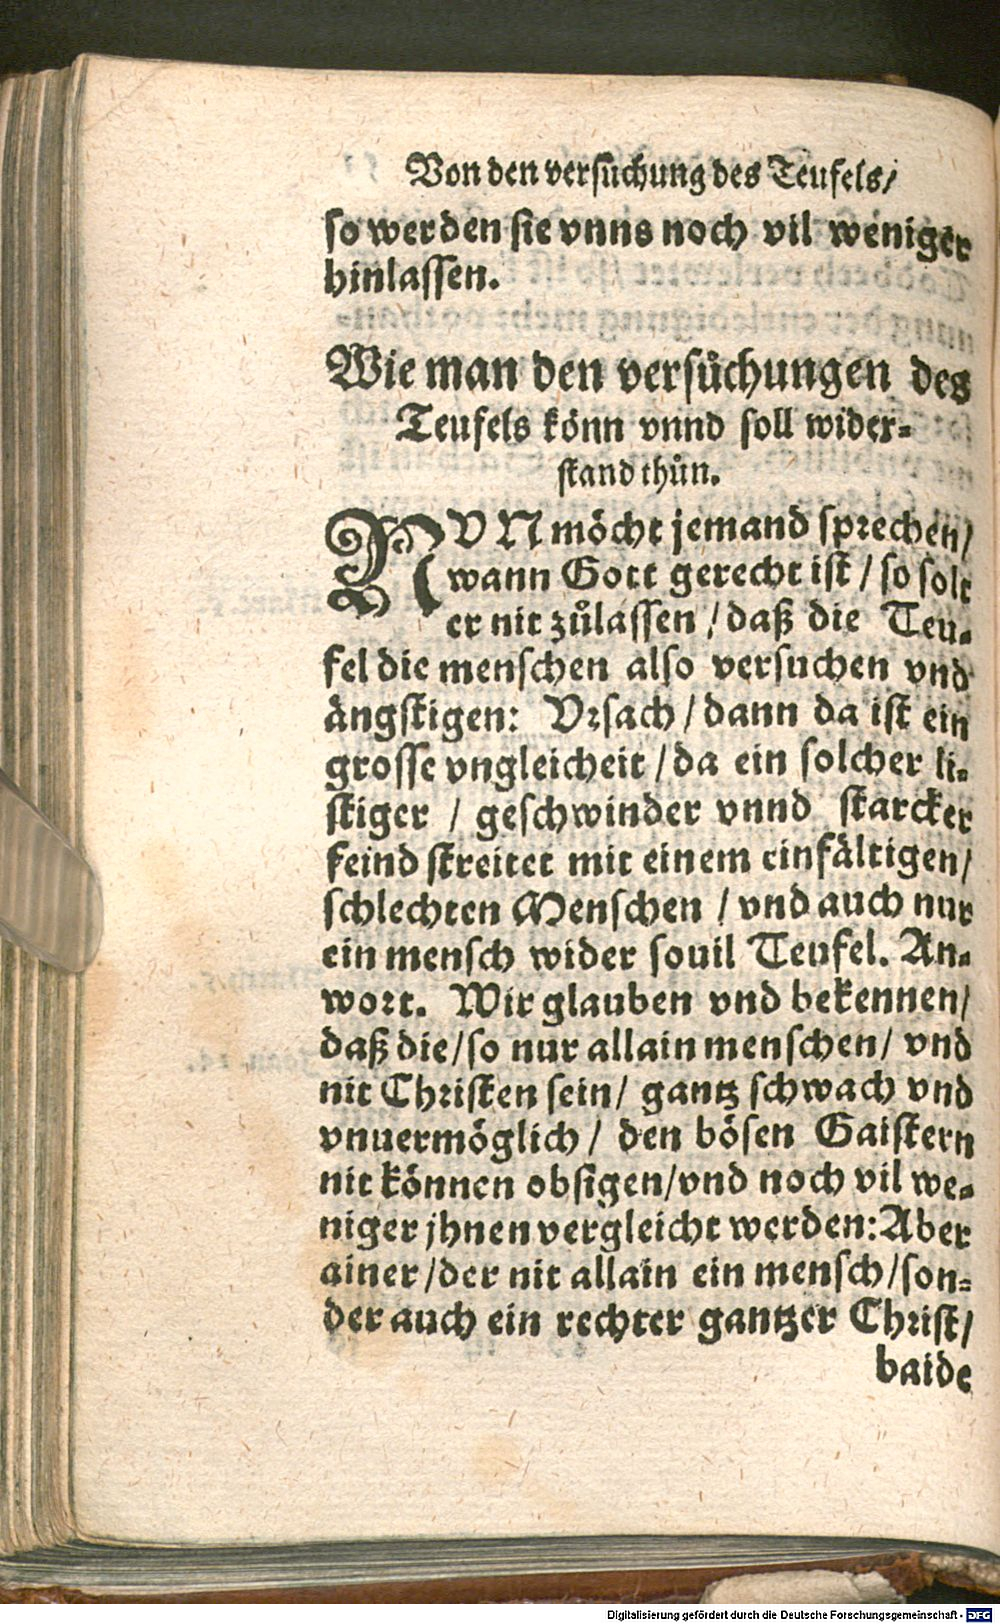 Von den versuchung des Teufels/
so werden sie vnns noch vil weniger
hinlassen.
Wie man den versůchungen des
Teufels könn vnnd soll wider-
stand thůn.
NVN möcht jemand sprechen/
wann Gott gerecht ist / so solt
er nit zůlassen / daß die Teu-
fel die menschen also versuchen vnd
ängstigen: Vrsach / dann da ist ein
grosse vngleicheit / da ein solcher li-
stiger / geschwinder vnnd starcker
feind streitet mit einem einfältigen/
schlechten Menschen / vnd auch nur
ein mensch wider souil Teufel. An-
wort. Wir glauben vnd bekennen/
daß die/so nur allain menschen/ vnd
nit Christen sein/ gantz schwach vnd
vnuermöglich / den bösen Gaistern
nit können obsigen/vnd noch vil we-
niger jhnen vergleicht werden: Aber
ainer /der nit allain ein mensch /son-
der auch ein rechter gantzer Christ/
baide
Digitalisierung gefördert durch die Deutsche Forschungsgemeinschaft - DFG